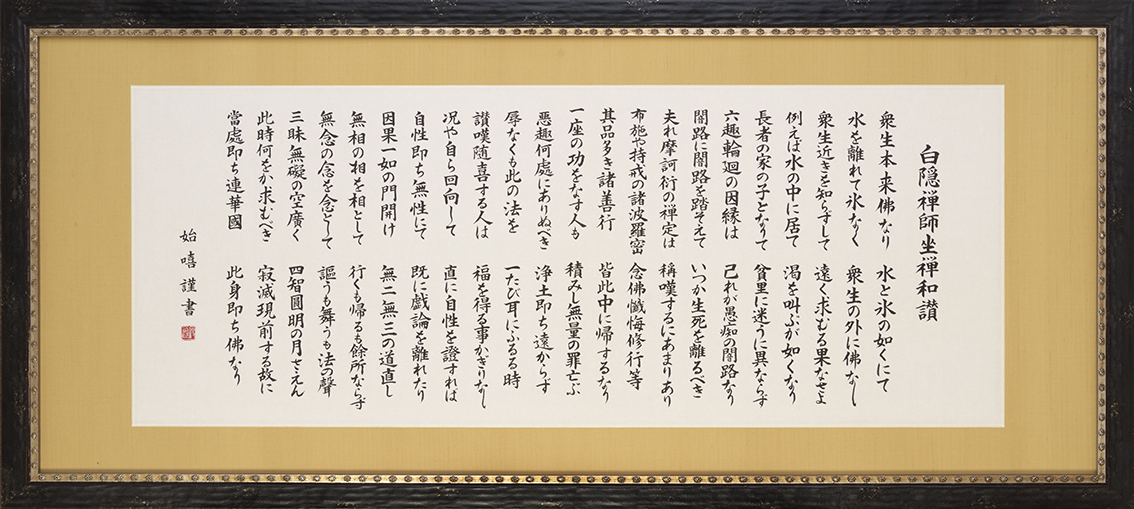 白隠禅師坐禅和讃
衆生本来佛なり　水と氷の如くにて
水を離れて氷なく　衆生の外に佛なし
衆生近きを知らずして　遠く求むる果なさよ
例えば水の中に居て　渇を叫ぶが如くなり
長者の家の子となりて　貧里に迷うに異ならず
六趣輪廻の因縁は　己れが愚痴の闇路なり
闇路に闇路を踏そえて　いつか生死を離るべき
夫れ摩訶衍の禅定は　稱嘆するにあまりあり
布施や持戒の諸波羅密　念佛懺悔修行等
其品多き諸善行　皆此中に帰するなり
一座の功をなす人も　積みし無量の罪亡ぶ
悪趣何處にありぬべき　浄土即ち遠からず
辱なくも此の法を　一たび耳にふるる時
讃嘆随喜する人は　福を得る事かぎりなし
况や自ら回向して　直に自性を證すれば
自性即ち無性にて　既に戯論を離れたり
因果一如の門開け　無二無三の道直し
無相の相を相として　行くも帰るも餘所ならず
無念の念を念として　謳うも舞うも法の聲
三昧無礙の空廣く　四智圓明の月さえん
此時何をか求むべき　寂滅現前する故に
當處即ち連華國　此身即ち佛なり
始嘻謹書